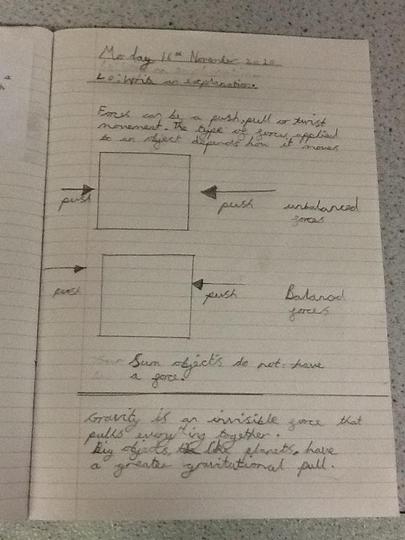 Monday 16th November 2020
LO: Write an explanation.
Forces can be a push, pull or twist
movement. The type of force applied
to an object depends how it moves
push
push
unbalanced
forces
push
push
Balanced
forces
Sum objects do not have
a force.
Gravity is an invisible force that
pulls everything together.
Big objects, like planets, have
a greater gravitational pull.